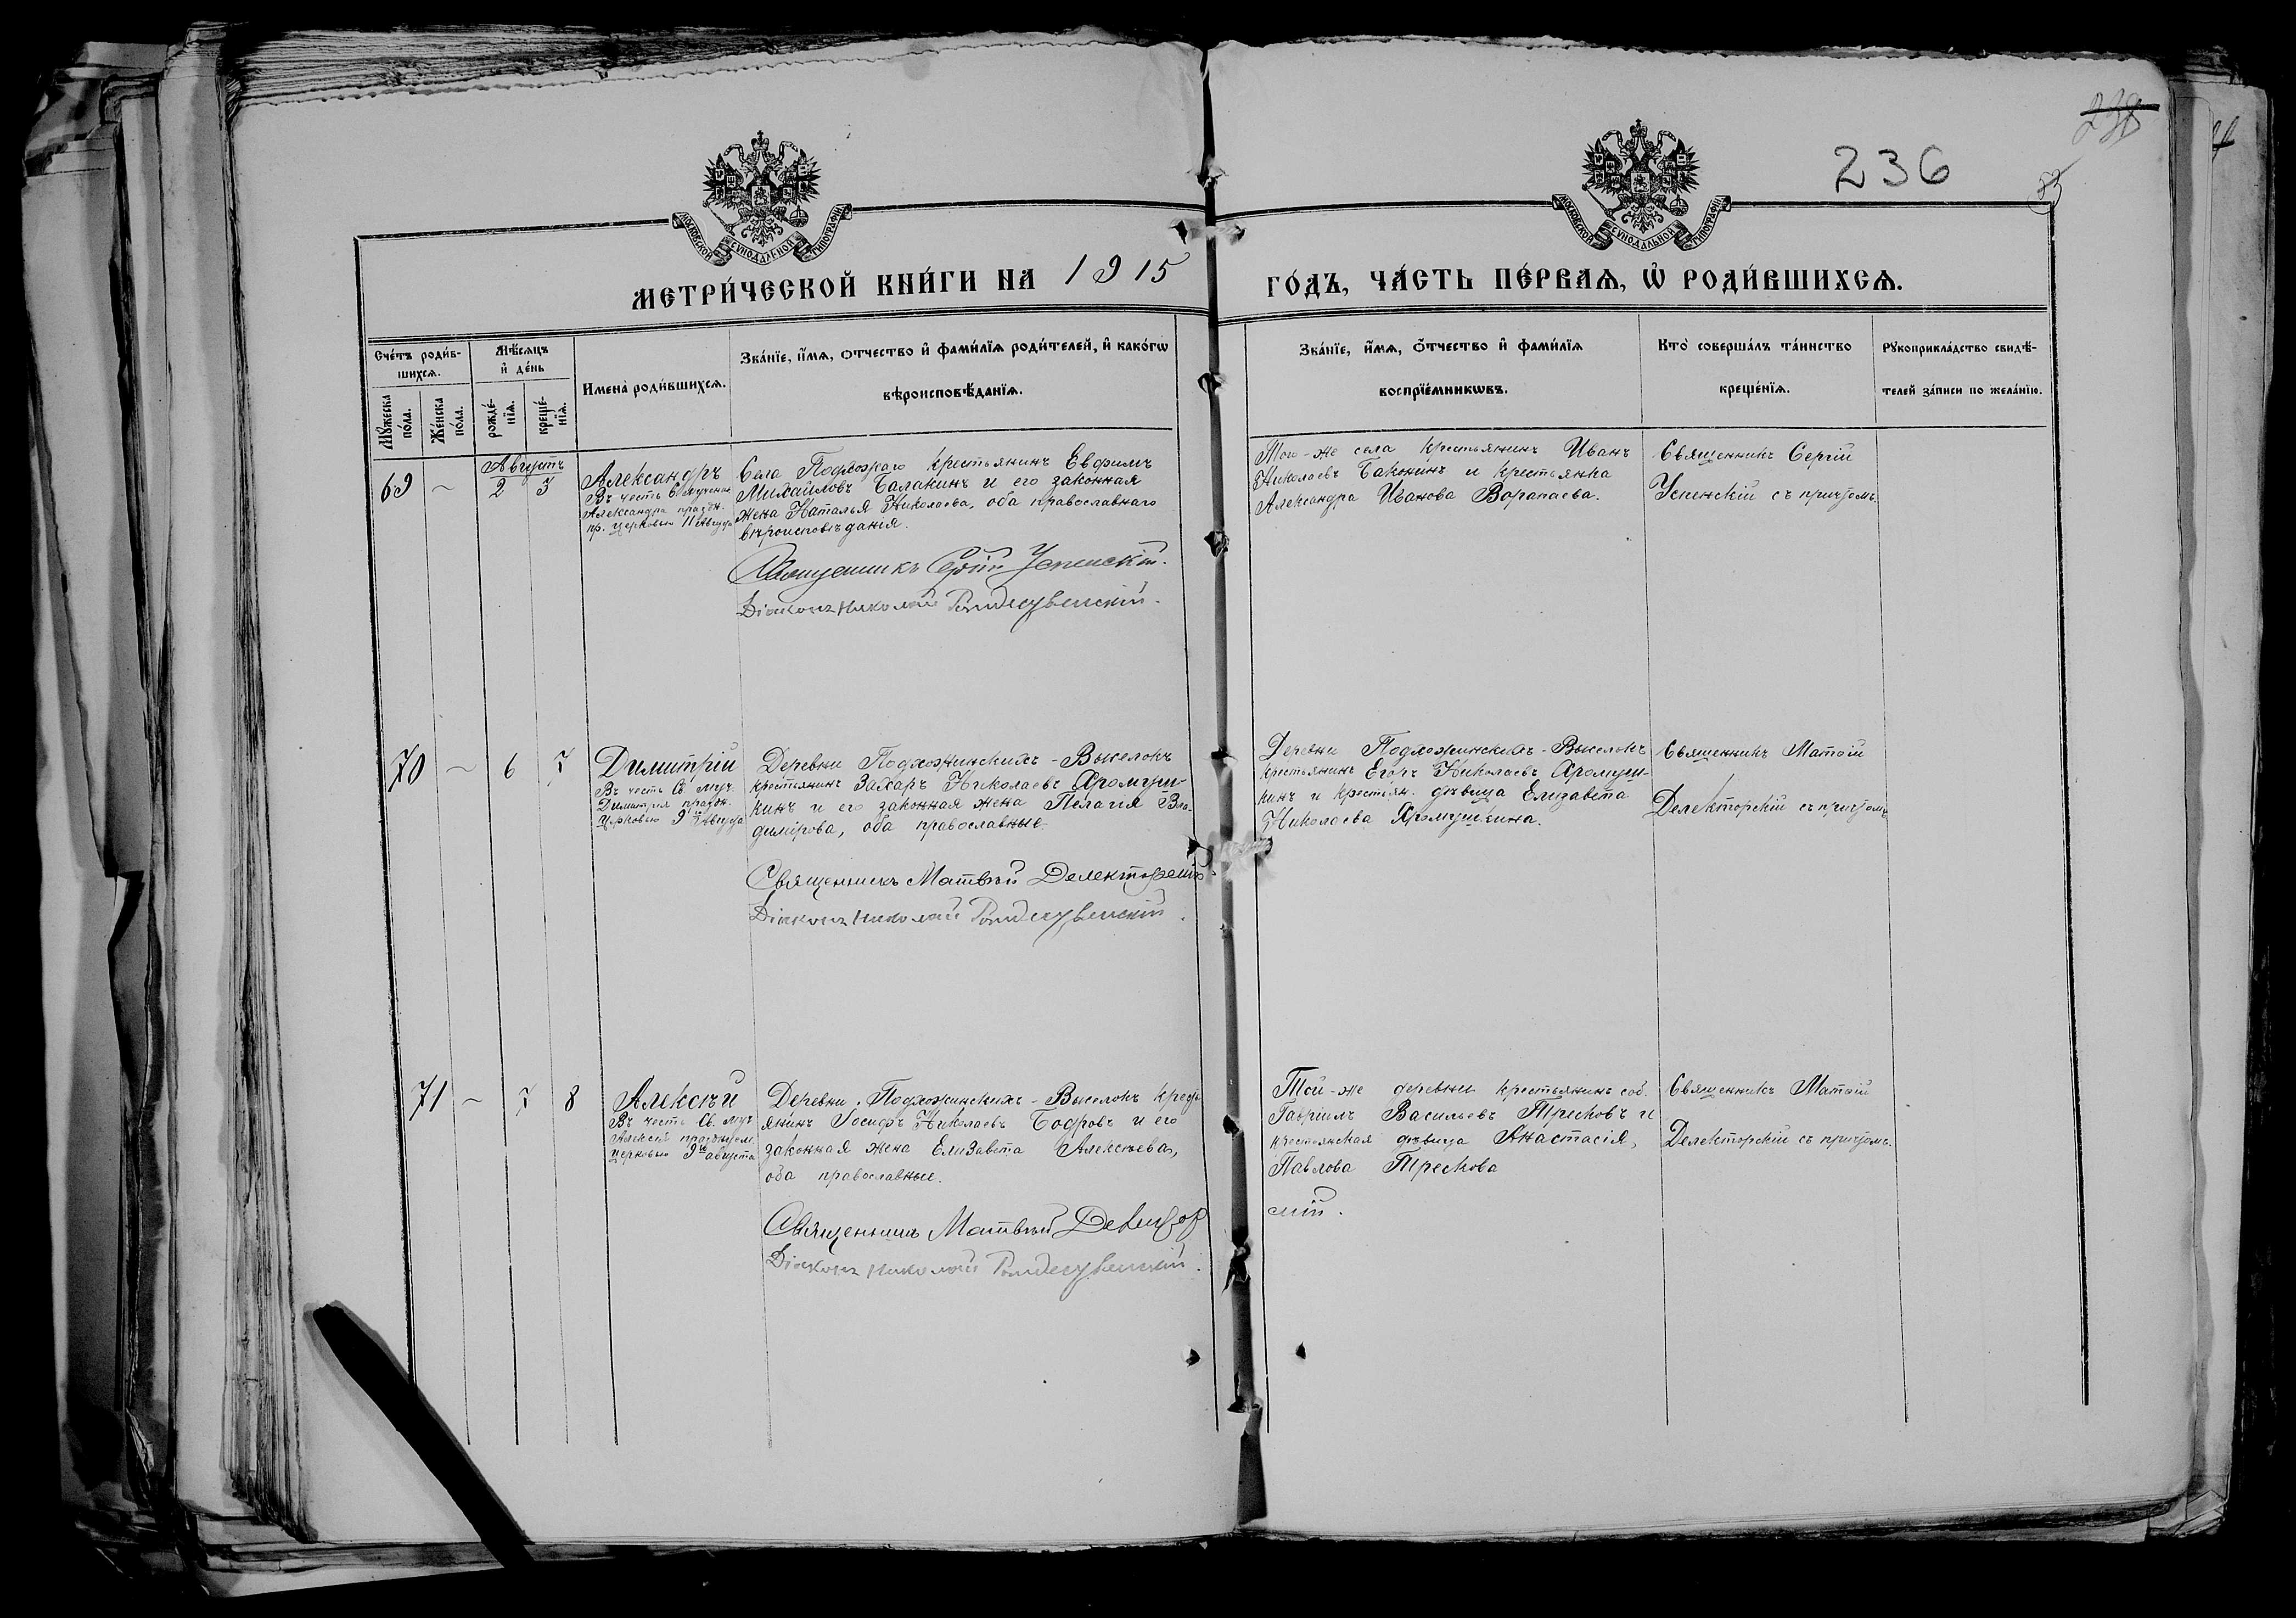 238
236
83
МОСКОВСКОЙ СѴНОДАЛЬНОЙ ТИПОГРАФІИ
МОСКОВСКОЙ СѴНОДАЛЬНОЙ ТИПОГРАФІИ
МЕТРИ́ЧЕСКОЙ КНИ́ГИ НА 1915
ГО́ДЪ, ЧА́СТЬ ПЕ́РВАѦ, Ѡ҆ РОДИ́ВШИХСѦ.
Сче́тъ роди́в-
шихсѧ.
Мꙋ́жеска
по́ла.
Же́нска
по́ла.
Мѣ́сѧцъ
и҆ де́нь
рожде́-
нїѧ.
креще́-
нїѧ.
Имена̀ роди́вшихсѧ.
Зва́нїе, и҆́мѧ, ѻ҆́тчество и҆ фами́лїѧ роди́телей, и҆ како́гѡ
вѣроисповѣ́данїѧ.
Зва́нїе, и҆́мѧ, ѻ҆́тчество и҆ фами́лїѧ
воспрїе́мникѡвъ.
Кто̀ соверша́лъ та́инство
креще́нїѧ.
Рꙋкоприкла́дство свидѣ́-
телей за́писи по жела́нїю.
Августъ
69 – 2 3
Александръ
Въ честь Св мученик
Александра праздн.
пр. церковью 11 Августа
Села Подхожаго крестьянинъ Евфимъ
Михайловъ Балакинъ и его законная
жена Наталья Николаева, оба православнаго
вѣроисповѣданія.
Священникъ Сергій Успенскій.
Діаконъ Николай Рождественскій.
Того-же села крестьянинъ Иванъ
Николаевъ Баконинъ и крестьянка
Александра Иванова Ворапаева.
Священникъ Сергій
Успенскій съ причтомъ
70 – 6 7
Димитрій
Въ честь Св муч.
Димитрія праздн.
церковью 9го Августа
Деревни Подхожинскихъ-Выселокъ
крестьянинъ Захаръ Николаевъ Хромуш-
кинъ и его законная жена Пелагія Вла-
димірова, оба православные.
Священникъ Матвѣй Делекторскій
Діаконъ Николай Рождественскій.
Деревни Подхожинскихъ-Выселокъ
крестьянинъ Егоръ Николаевъ Хромуш-
кинъ и крестьян. дѣвица Елизавета
Николаева Хромушкина.
Священникъ Матѳій
Делекторскій съ причтомъ
71 – 7 8
Алексѣй
Въ честь Св. муч
Алексія празднуем.
церковью 9го августа
Деревни Подхожинскихъ-Выселокъ кресть
янинъ Іосифъ Николаевъ Бодровъ и его
законная жена Елизавета Алексѣева,
оба православные.
Священникъ Матвѣй Делектор
скій.
Діаконъ Николай Рождественскій.
Той-же деревни крестьянинъ соб.
Гавріилъ Васильевъ Трековъ и
крестьянская дѣвица Анастасія,
Павлова Трекова
Священникъ Матѳій
Делекторскій съ причтомъ.